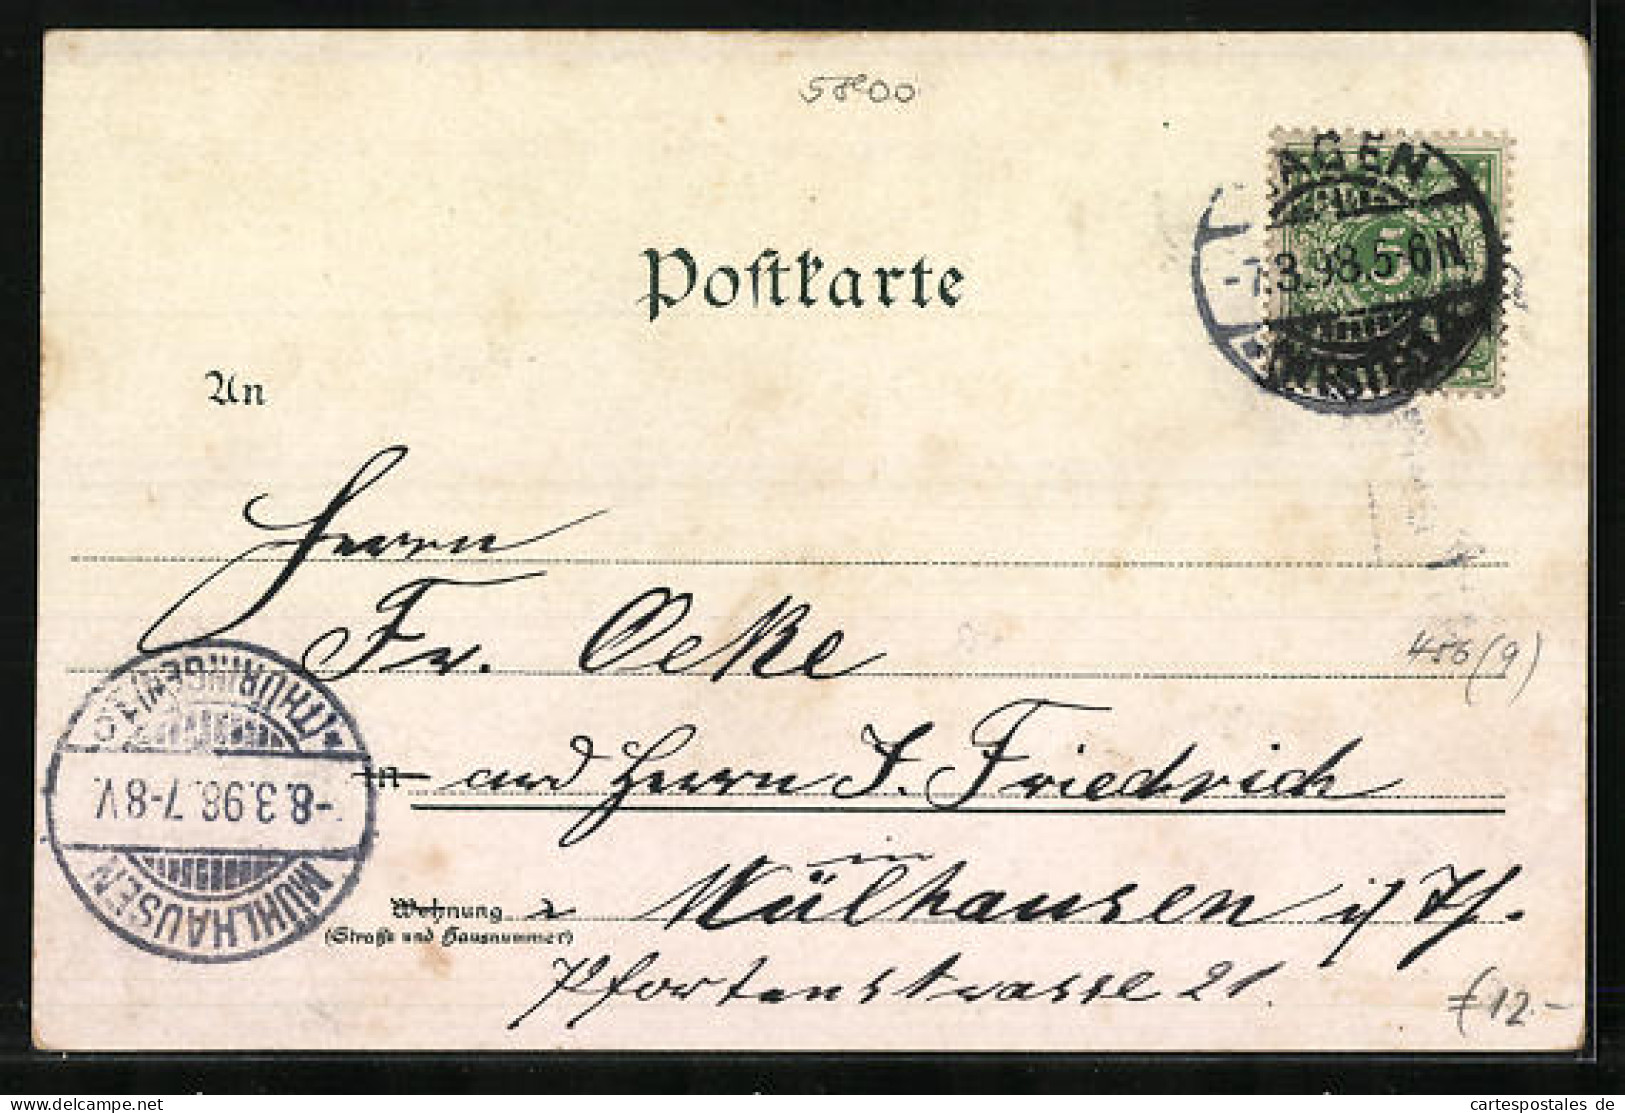 5800
HAGEN
-7.3.98.5-6N
(WESTF.)
5
Postkarte
An
Herrn
Fr. Oeke
456(9)
in and Herrn J. Friedrich
in
Wohnung Mülhausen i/Th.
(Straße und Hausnummer)
Pfortenstrasse 21.
€12.-
(THÜRINGEN)1.
-8.3.98.7-8V.
MÜHLHAUSEN
www.delcampe.net
cartespostales de